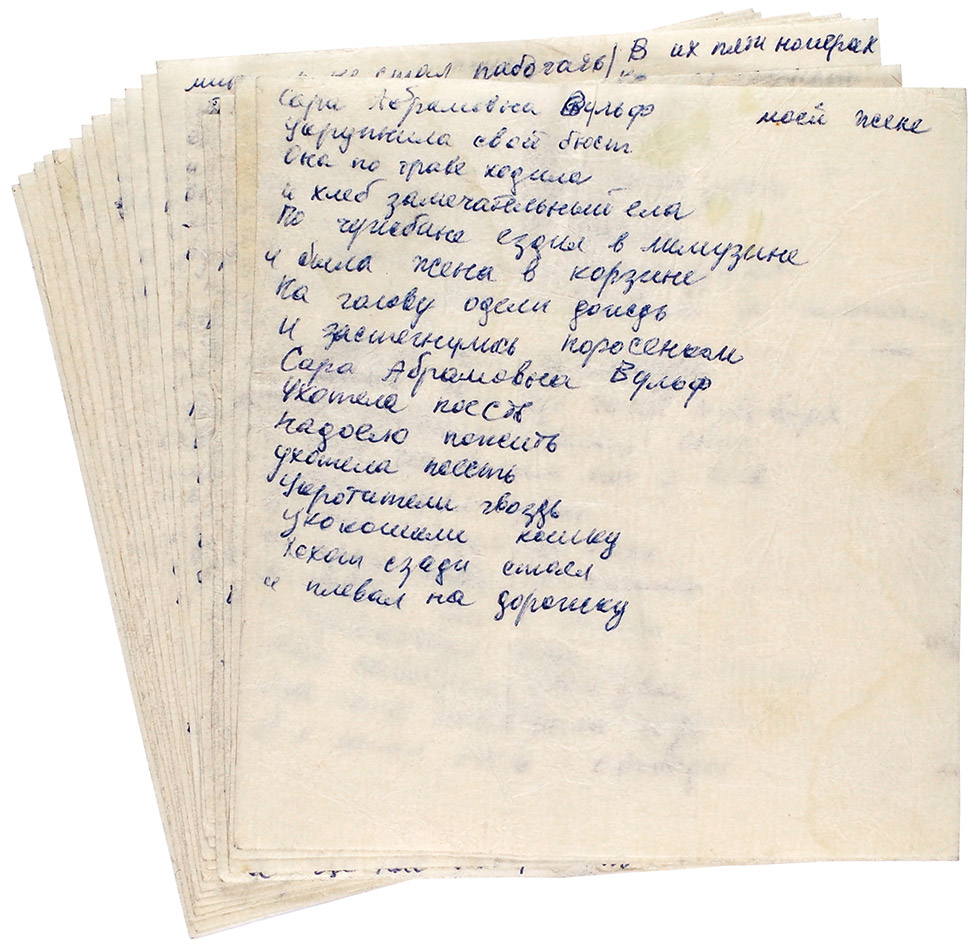 не стал работать/ В их пяти номерах
моей жене
Сара Абрамовна Вульф
Укрупнила свой бюст
Она по траве ходила
и хлеб замечательный ела
По чужбине ездил в лимузине
и была жена в корзине
На голову одели дождь
И застегнулись поросенком
Сара Абрамовна Вульф
Ухотела поесть
Надоело пожить
Ухотела поесть
Укротители гвоздь
Укокошили кошку
Хохот сзади стоял
и плевал на дорожку